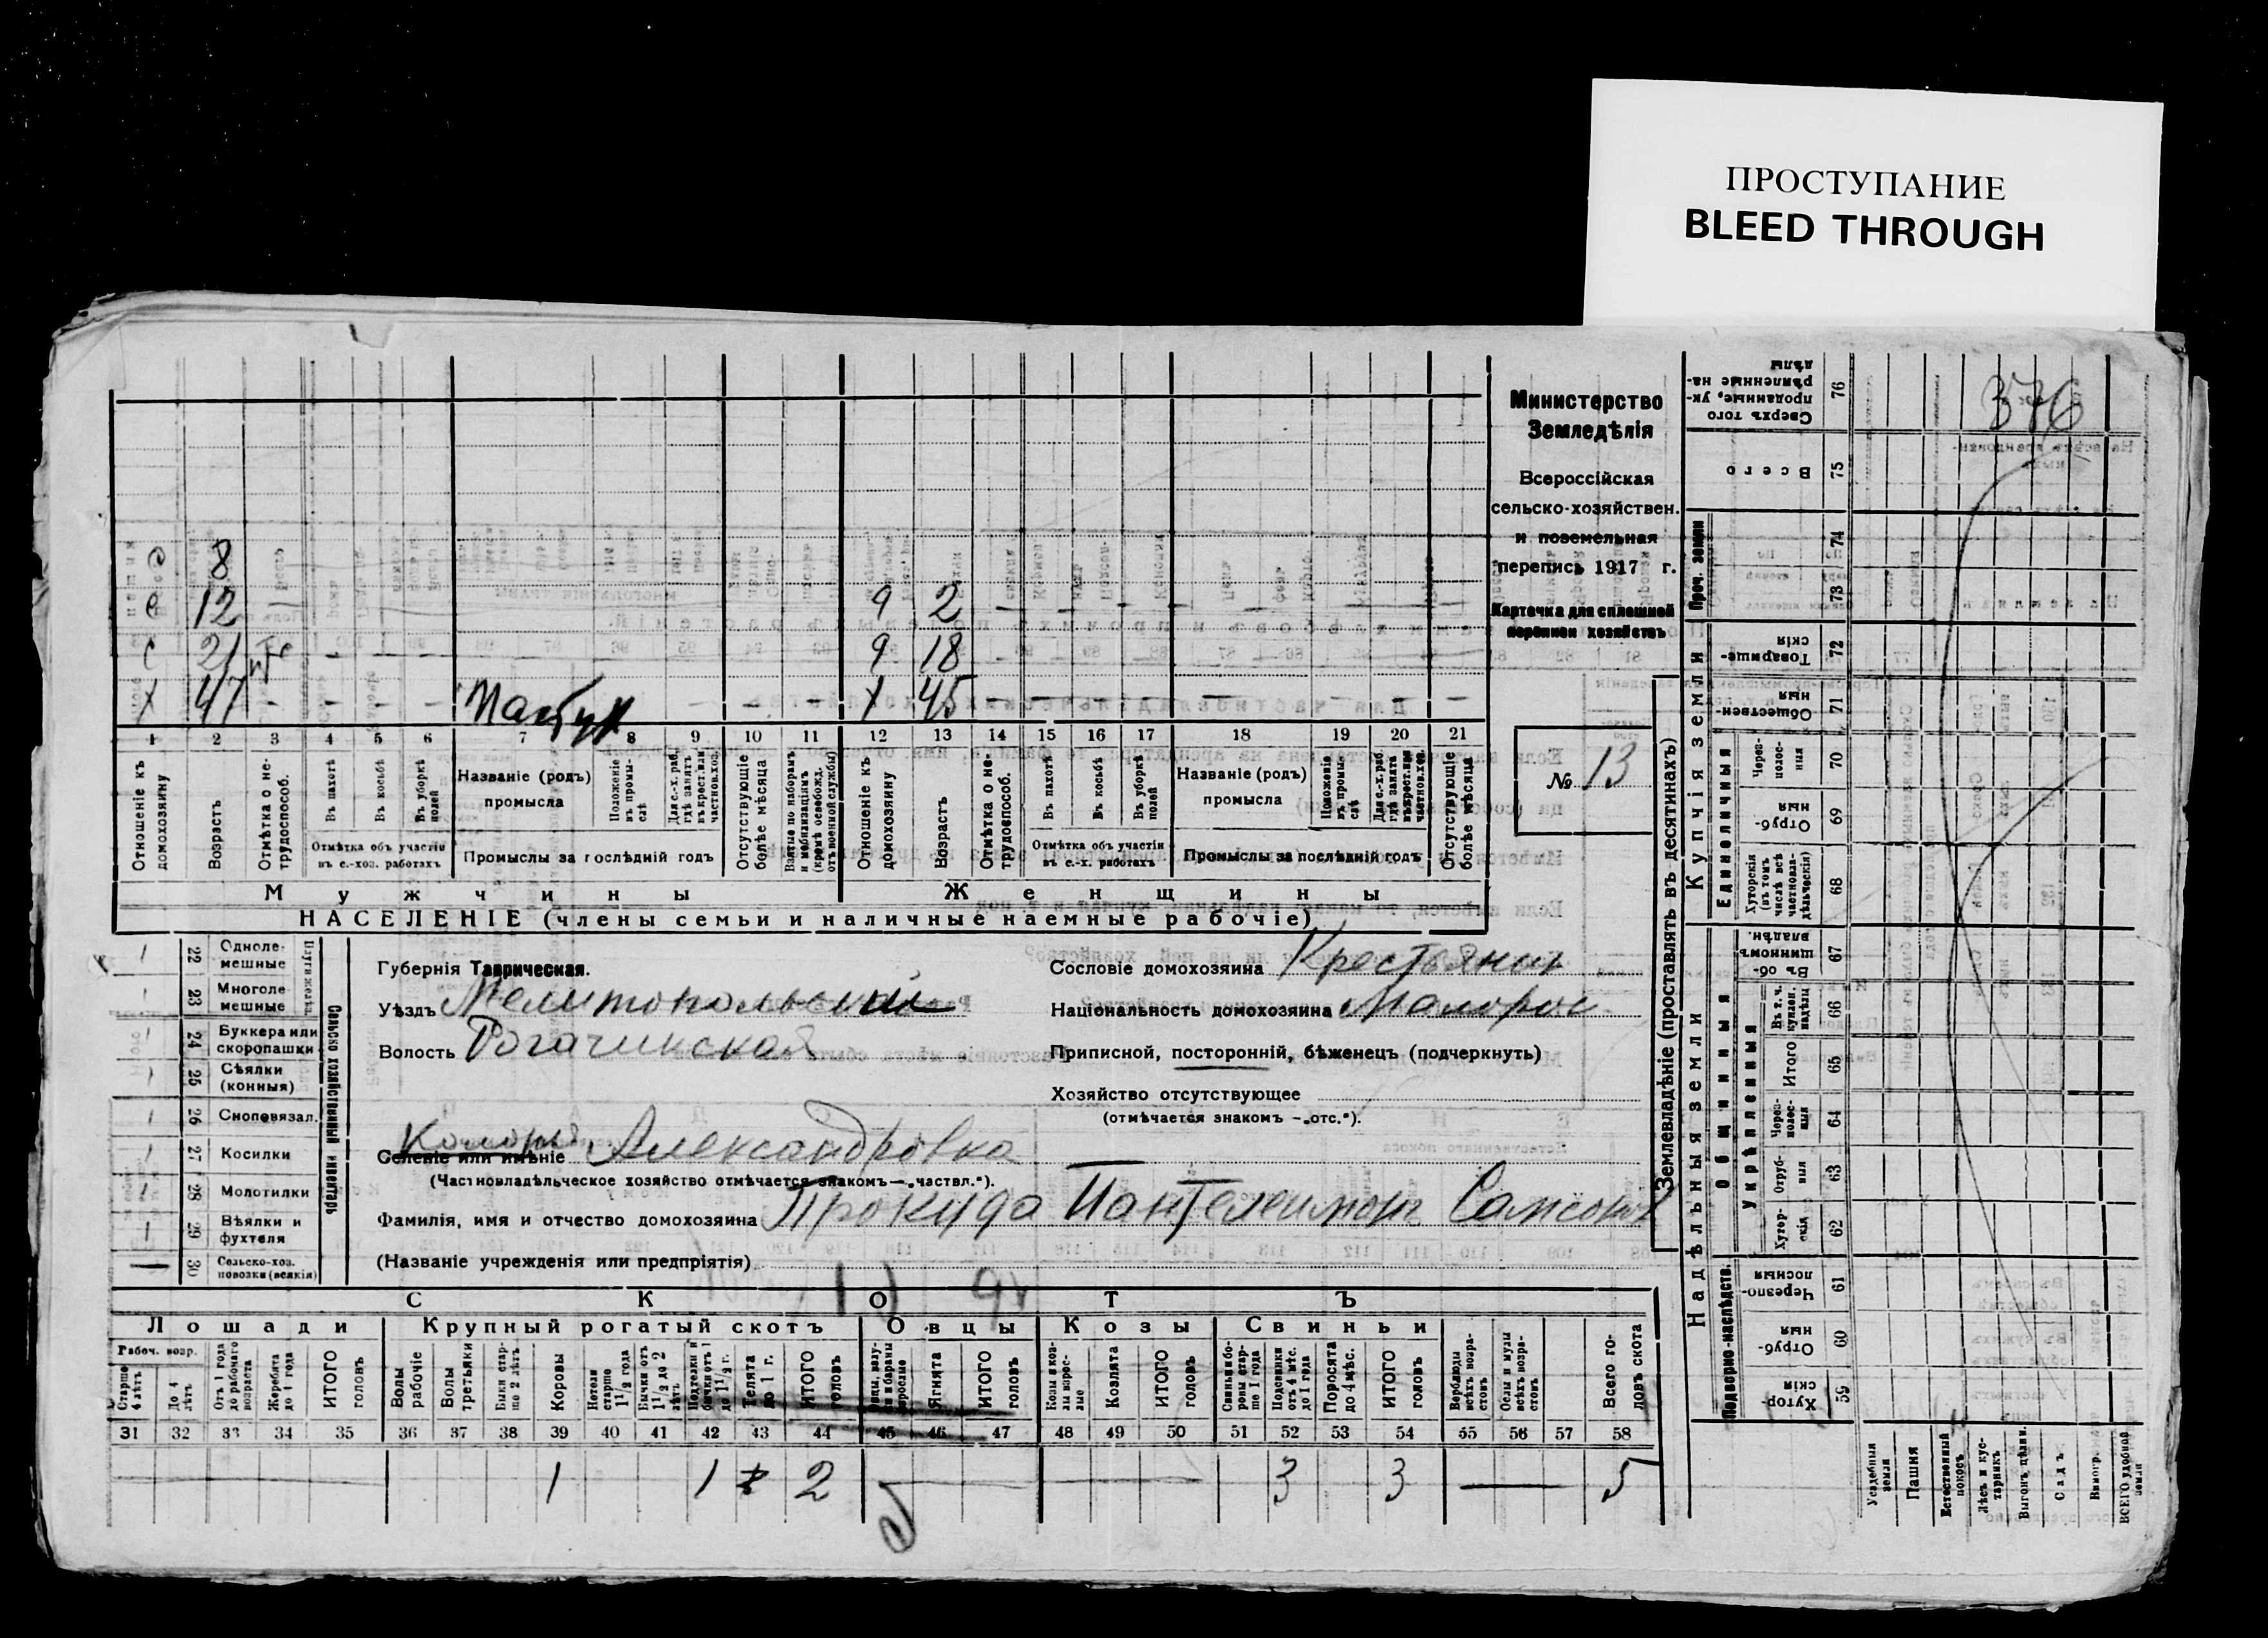 ПРОСТУПАНИЕ
BLEED THROUGH
376
Министерство
Земледѣлія
Всероссійская
сельско-хозяйствен.
и поземельная
перепись 1917 г.
Карточка для сплошной
переписи хозяйствъ
№ 13
с 8
с 12 — 9 2 — — — — — — — —
с 21 — — — 9 18
х 47 — — — — Пастух — — — х 45 — — — — — — — —
1 2 3 4 5 6 7 8 9 10 11 12 13 14 15 16 17 18 19 20 21
Отношеніе къ домохозяину
Возрастъ
Отмѣтка о не-трудоспособ.
Въ пахотѣ
Въ косьбѣ
Въ уборкѣ полей
Отмѣтка объ участіи въ с.-хоз. работахъ
Названіе (родъ) промысла
Положеніе въ промы-слѣ
Для с.-х. раб. гдѣ занятъ въ крест. или частновл. хоз.
Промыслы за послѣдній годъ
Отсутствующіе болѣе мѣсяца
Взятые по наборамъ и мобилизаціямъ (кромѣ освобожд. отъ военной службы)
Отношеніе къ домохозяину
Возрастъ
Отмѣтка о не-трудоспособ.
Въ пахотѣ
Въ косьбѣ
Въ уборкѣ полей
Отмѣтка объ участіи въ с.-х. работахъ
Названіе (родъ) промысла
Положеніе въ промы-слѣ
Для с.-х. раб. гдѣ занята въ крест. или частнов. хоз.
Промыслы за послѣдній годъ
Отсутствующіе болѣе мѣсяца
Мужчины Женщины
НАСЕЛЕНІЕ (члены семьи и наличные наемные рабочіе)
22 Одноле-мешные
23 Многоле мешные
24 Буккера или скоропашки
25 Сѣялки (конныя)
26 Сноповязал.
27 Косилки
28 Молотилки
29 Вѣялки и фухтеля
30 Сельско-хоз. повозки (всякія)
Сельско хозяйственный инвентарь
Губернія Таврическая.
Уѣздъ Мелитопольский
Волость Рогачинская
Селеніе или имѣніе Александровка
(Частновладѣльческое хозяйство отмѣчается знакомъ—„частвл.“).
Фамилія, имя и отчество домохозяина Прокуда Пантелеимонъ Самсонов
(Названіе учрежденія или предпріятія)
Сословіе домохозяина Крестьянин
Національность домохозяина Малорос
Приписной, посторонній, бѣженецъ (подчеркнуть)
Хозяйство отсутствующее
(отмѣчается знакомъ —„отс.“).
СКОТЪ
Лошади Крупный рогатый скотъ Овцы Козы Свиньи
Рабоч. возр.
Старше 4 лѣтъ
До 4 лѣтъ
Отъ 1 года до рабочаго возраста
Жеребята до 1 года
ИТОГО головъ
Волы рабочіе
Волы третьяки
Быки стар-ше 2 лѣтъ
Коровы
Нетели старше 1½ года
Бычки отъ 1½ до 2 лѣтъ
Подтелки и бычки отъ 1 до 1½ г.
Телята до 1 г.
ИТОГО головъ
Ягнята
ИТОГО головъ
Козы и коз-лы взрос-лые
Козлята
ИТОГО головъ
Свиньи и бо-ровы стар-ше 1 года
Подсвинки отъ 4 мѣс. до 1 года
Поросята до 4 мѣс.
ИТОГО головъ
Верблюды всѣхъ возра-стовъ
Ослы и мулы всѣхъ возра-стовъ
Всего го-ловъ скота
31 32 33 34 35 36 37 38 39 40 41 42 43 44 45 46 47 48 49 50 51 52 53 54 55 56 57 58
1 1 2 3 3 5
Землевладѣніе (проставлять въ десятинахъ)
Надѣльныя земли
Купчія земли
Проч. земли
Подворно-наслѣдств.
Общинныя
Укрѣпленныя
Единоличныя
76 Сверхъ того проданные, ук-рѣпленные на-дѣлы
75 Всего
74
73
72 Товарище-скія
71 Обществен-ныя
70 Через-полос-ныя
69 Отруб-ныя
68 Хуторскія (въ томъ числѣ всѣ частновла-дѣльческія)
67 Въ об-щинномъ владѣн.
66 Въ т. ч. куплен. надѣлы
65 Итого
64 Через-полос-ныя
63 Отруб-ныя
62 Хутор-скія
61 Черезпо-лосныя
60 Отруб-ныя
59 Хутор-скія
Усадебная земля
Пашня
Естественный покосъ
Лѣсъ и кус-тарникъ
Выгонъ, цѣлин.
Садъ
Виногр.
ВСЕГО удобной земли